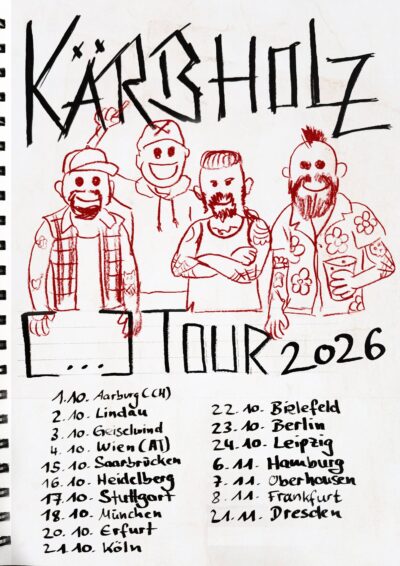 KÄRBHOLZ
[...] TOUR 2026
1.10. Aarburg (CH)
2.10. Lindau
3.10. Geiselwind
4.10. Wien (AT)
15.10. Saarbrücken
16.10. Heidelberg
17.10. Stuttgart
18.10. München
20.10. Erfurt
21.10. Köln
22.10. Bielefeld
23.10. Berlin
24.10. Leipzig
6.11. Hamburg
7.11. Oberhausen
8.11. Frankfurt
21.11. Dresden